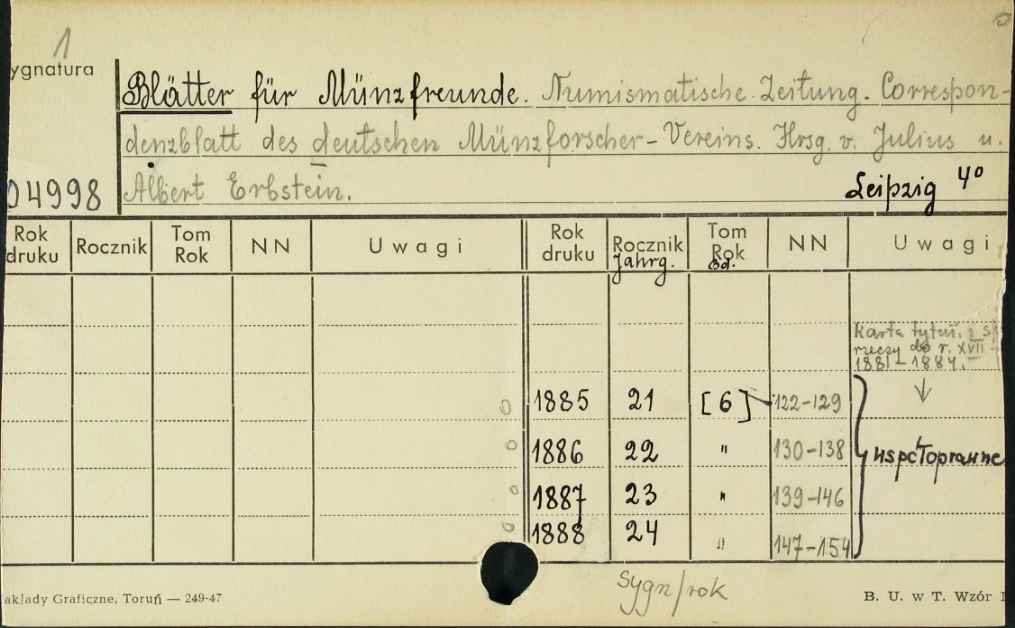 1
ygnatura
Blätter für Münzfreunde. Numismatische Zeitung. Correspon-
denzblatt des deutschen Münzforscher-Vereins. Hrsg. v. Julius u.
04998 Albert Erbstein. Leipzig 4°
Rok druku Rocznik Tom Rok NN Uwagi Rok druku Rocznik Jahrg. Tom Rok Bd. NN Uwagi
Karta tytuł. z
rzeczy do r. XVII
1881-1884.
1885 21 [6] 122-129
1886 22 " 130-138
1887 23 " 139-146
1888 24 " 147-154
Sygn/rok
akłady Graficzne, Toruń — 249-47 B. U. w T. Wzór